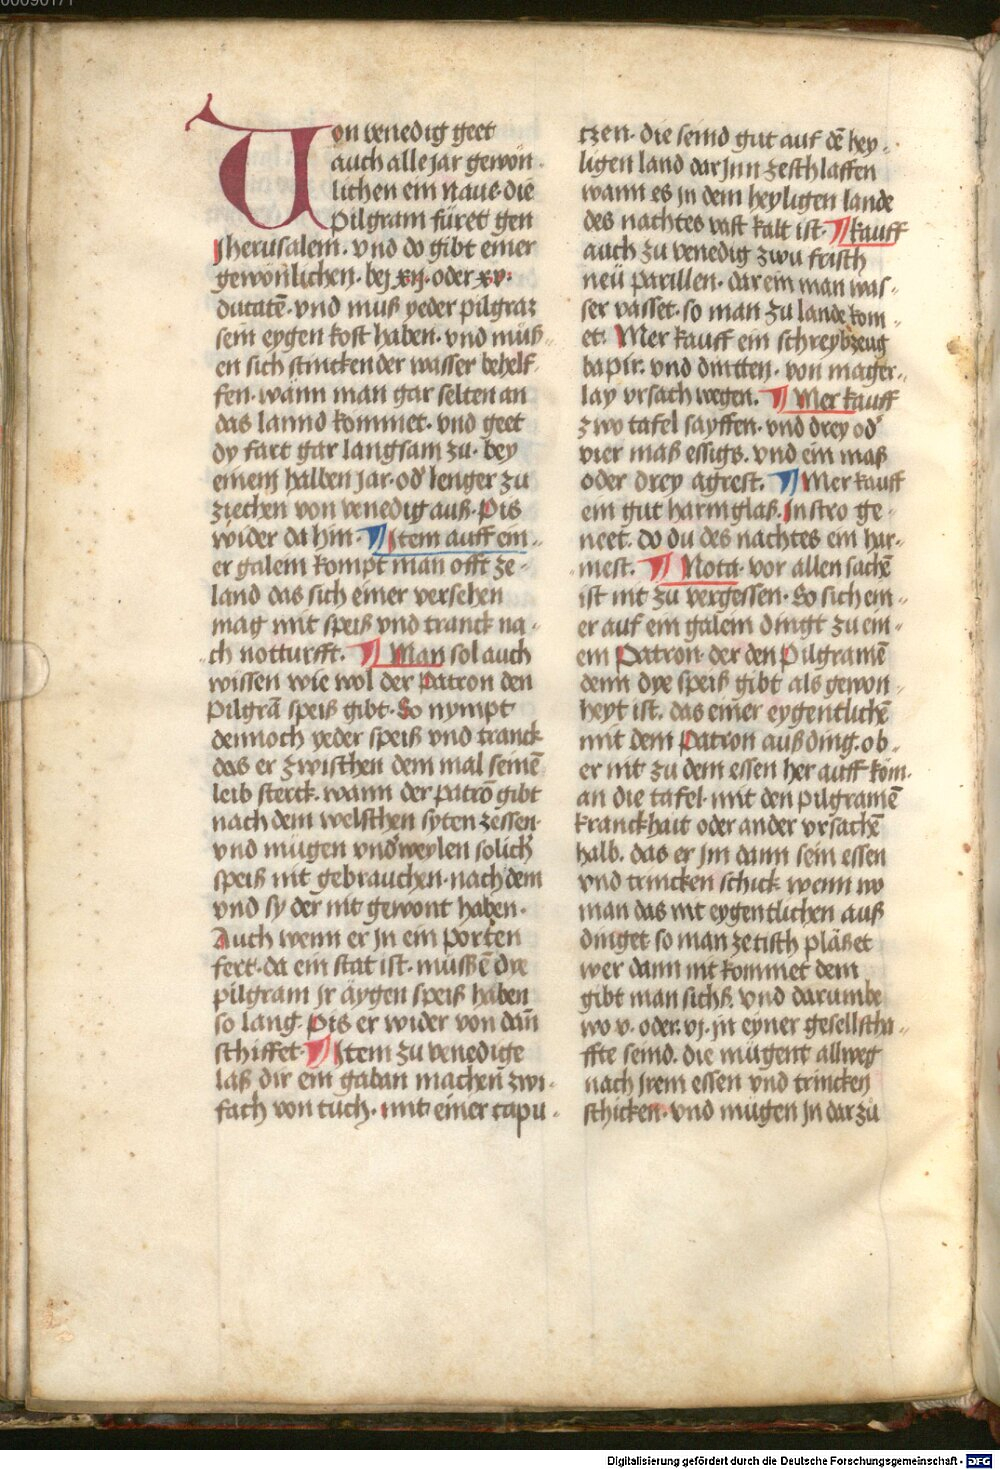 00090171
Uon venedig geet
auch alle jar gewon-
lichen ein naue. die
pilgram füret gen
Jherusalem. vnd do gibt einer
gewonlichen. bej xij. oder xv.
ducatē. vnd muß yeder pilgraz
sein eygen kost haben. vnd müß-
en sich stinckender wasser behelf-
fen. wann man gar selten an
das lannd kommet. vnd geet
dy fart gar langsam zu. bey
einem halben jar. od' lenger zu
ziechen von venedig auß. Pis
wider da hin. ¶ Item auff ein-
er galein kompt man offt ze-
land das sich einer versehen
mag mit speiß vnd tranck na-
ch notturfft. ¶ Man sol auch
wissen wie wol der Patron den
Pilgrā speiß gibt. So nympt
dennoch yeder speiß vnd tranck
das er zwischen dem mal seinē
leib sterck. wann der patrō gibt
nach dem welschen syten zessen.
vnd mügen vnd'weylen solich
speiß nit gebrauchen. nach dem
vnd sy der nit gewont haben.
Auch wenn er jn ein porten
fert. da ein stat ist. müssē dye
pilgram jr äygen speiß haben
so lang. Pis er wider von dan̄
schiffet. ¶ Item zu venedige
laß dir ein gaban machen zwi-
fach von tuch. mit einer capu-
tzen. die seind gut auf dē hey-
ligen land dar jnn zeschlaffen
wann es jn dem heyligen lande
des nachtes vast kalt ist. ¶ kauff
auch zu venedig zwu frisch
neü parillen. dar ein man was-
ser vasset. so man zu lande kom-
et. Mer kauff ein schreybzeug
bapir. vnd dintten. von mager-
lay vrsach wegen. ¶ Mer kauff
zwo tafel sayffen. vnd drey od'
vier maß essigs. vnd ein maß
oder drey agrest. ¶ Mer kauff
ein gut harmglaß. Jn stro ge-
neet. do du des nachtes ein har-
mest. ¶ Nota. vor allen sachē
ist nit zu vergessen. So sich ein-
er auf ein galein dingt zu ein-
em Patron. der den Pilgramē
denn dye speiß gibt als gewon-
heyt ist. das einer eygentlichē
mit dem Patron auß ding. ob-
er nit zu dem essen her auff köm.
an die tafel. mit den pilgramē
kranckhait oder ander vrsachē
halb. das er jm dann sein essen
vnd trincken schick. wenn wo
man das nit eygentlichen auß
dinget so man ze tisch pläßet
wer dann nit kommet dem
gibt man sichß. vnd darumbe
wo v. oder. vj. in eyner gesellscha-
ffte seind. die mügent allweg
nach jrem essen vnd trincken
schicken. vnd mügen jn dar zü
Digitalisierung gefördert durch die Deutsche Forschungsgemeinschaft - DFG